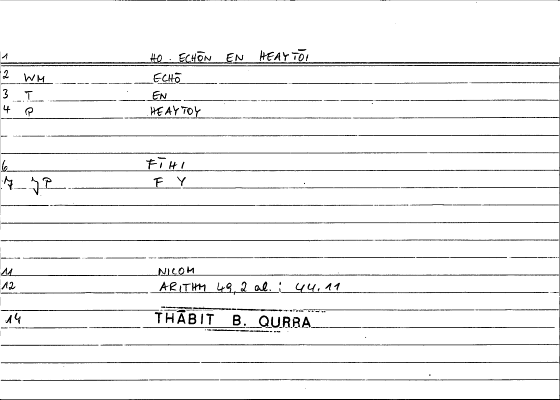 1 HO . ECHŌN EN HEAYTŌI
2 WM ECHŌ
3 T EN
4 P HEAYTOY
6 FĪHI
7 F Y
11 NICOM
12 ARITHM 49,2 al. : 44.11
14 THĀBIT B. QURRA